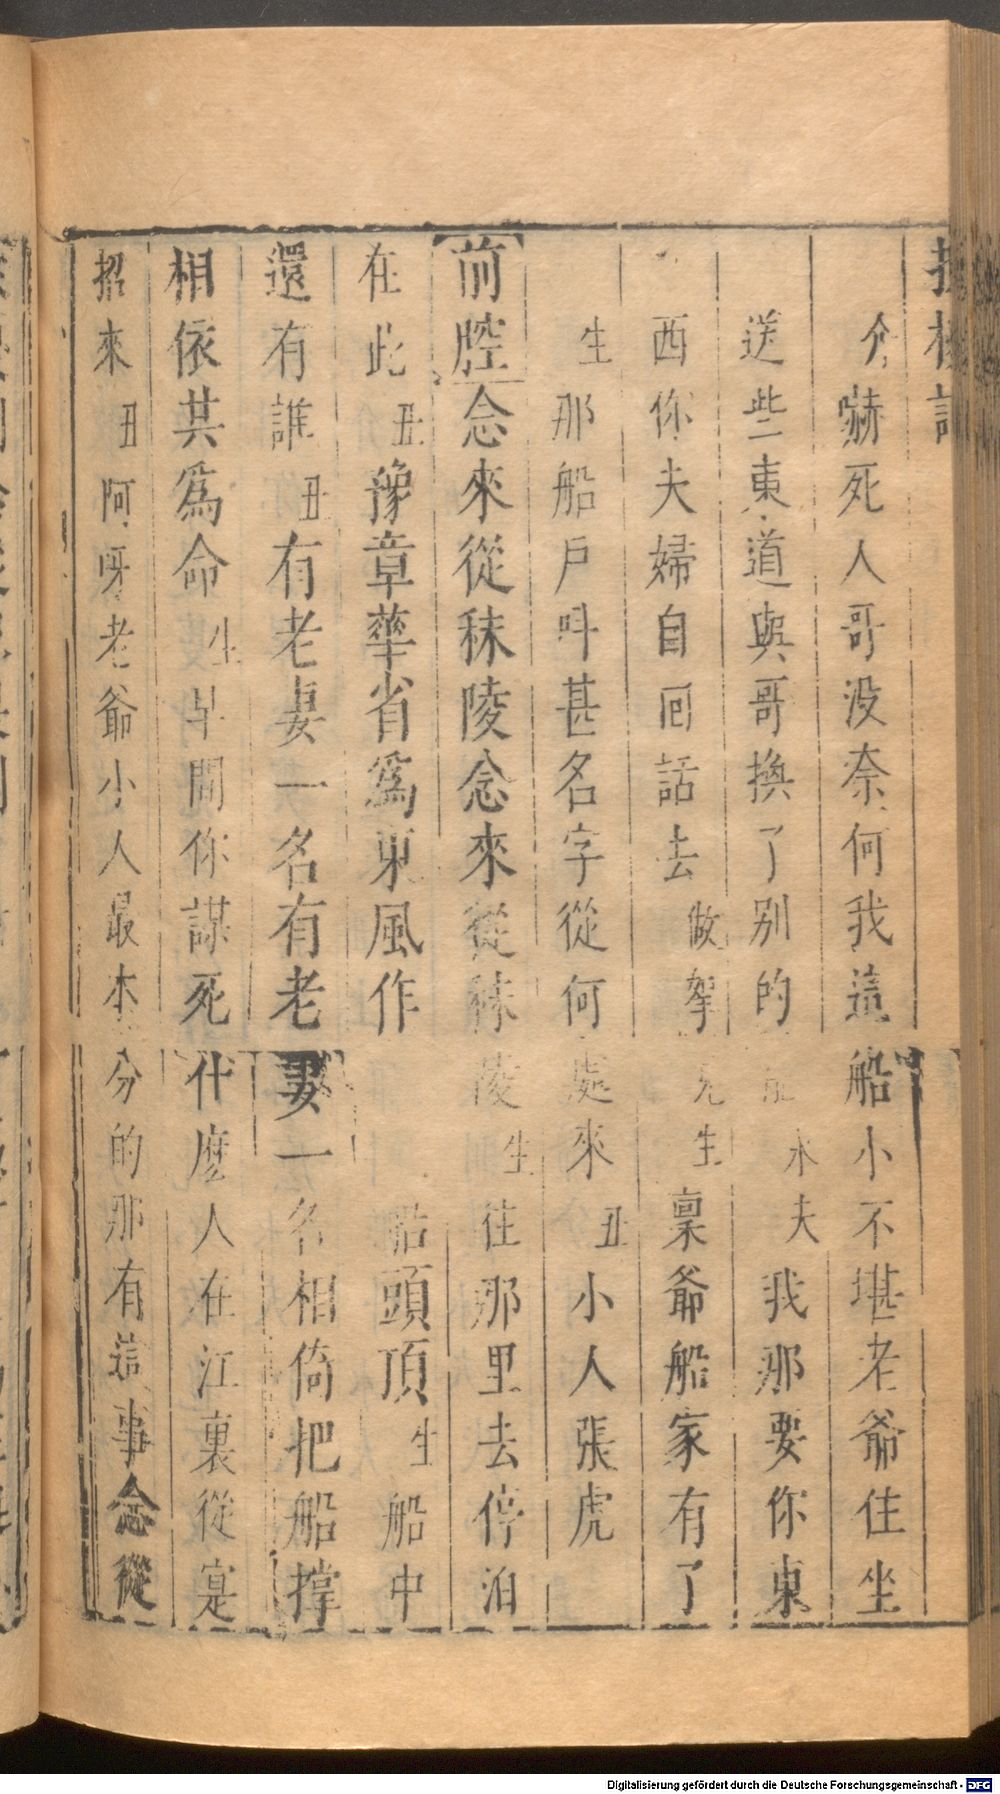 介嚇死人哥没奈何我這船小不堪老爺住坐
送些東道與哥換了别的 水夫我那要你東
西你夫婦自囘話去做拏見生稟爺船家有了
生那船戶呌甚名字從何處來丑小人張虎
前腔念來從秣陵念來從秣陵生往那里去停泊
在此丑豫章華省爲東風作 船頭頂生船中
還有誰丑有老妻一名有老妻一名相倚把船撑
相依共爲命生早間你謀死什麽人在江裏從寔
招來丑阿呀老爺小人最本分的那有這事念從
Digitalisierung gefördert durch die Deutsche Forschungsgemeinschaft - DFG